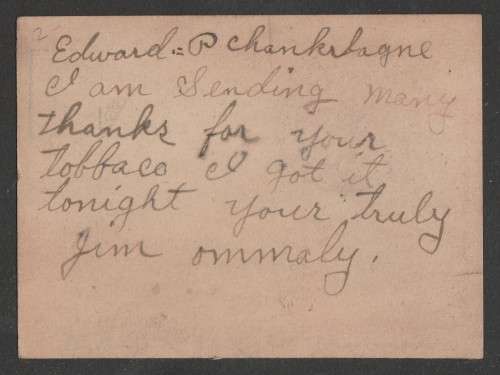 Edward = P Chankrbagne
I am Sending many
thanks for your
tobbaco I got it
tonight your truly
Jim ommaly.